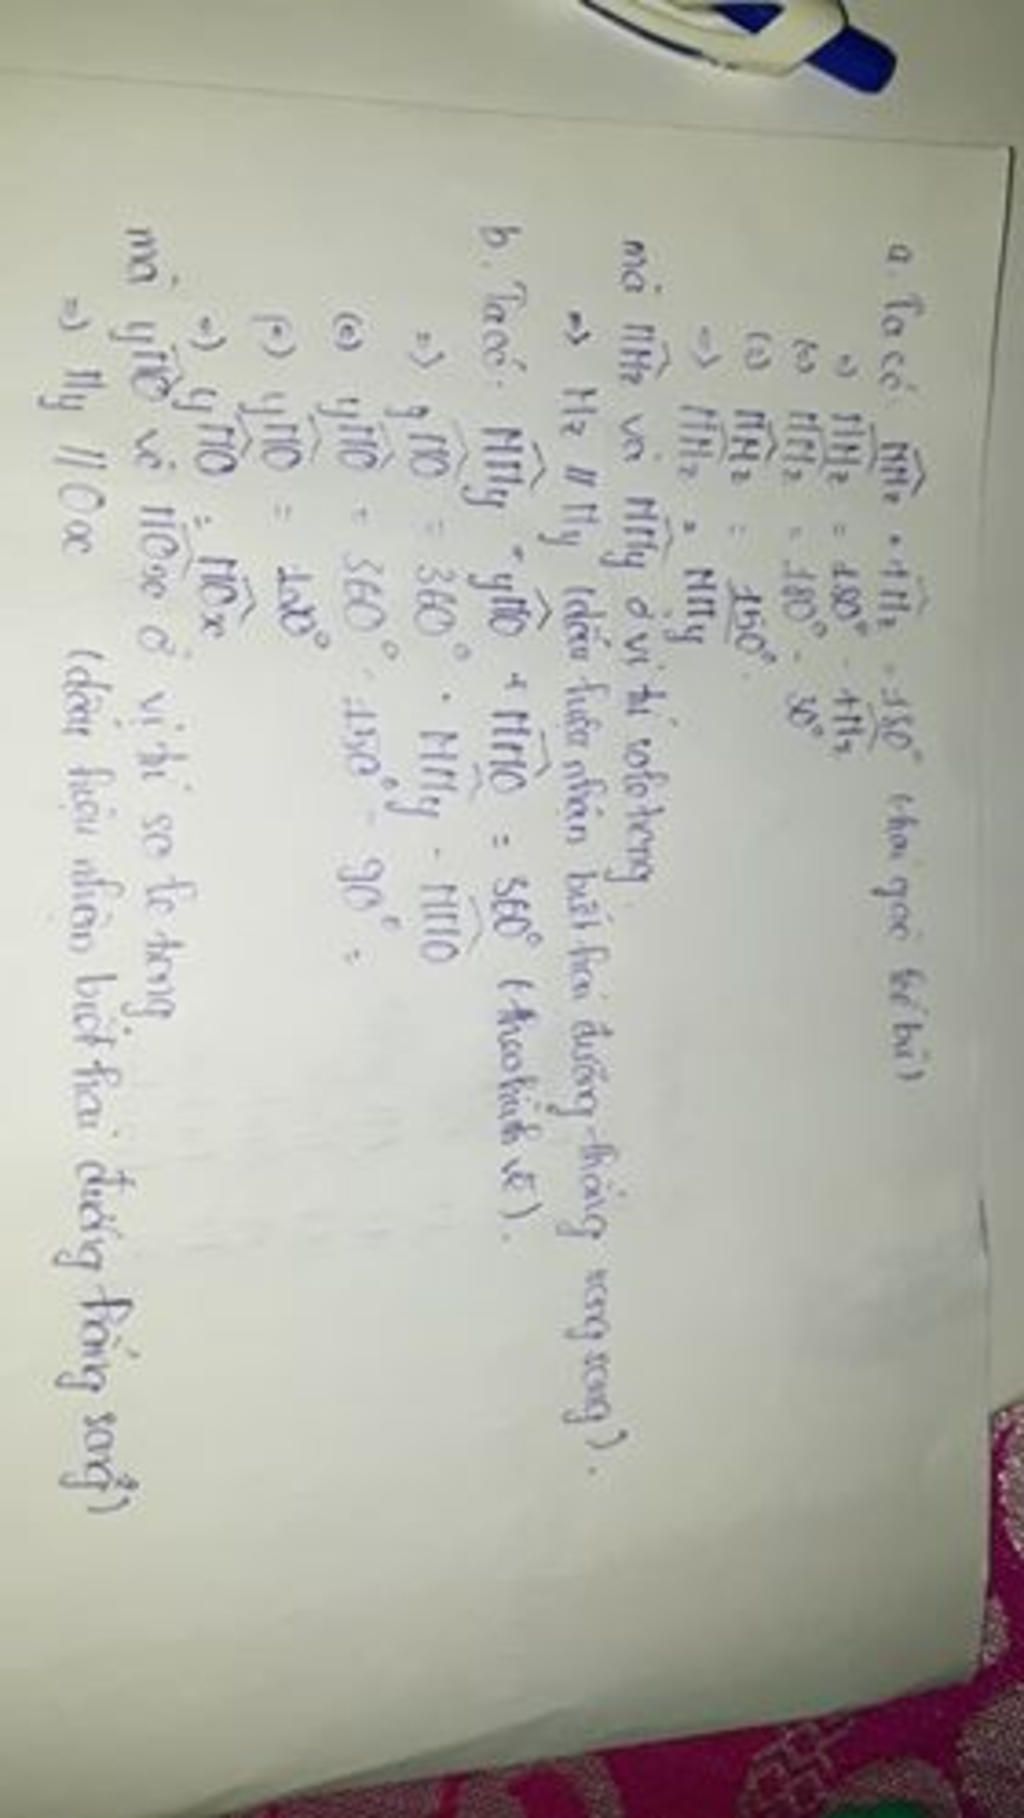 a. Ta có MHz + tHz = 180° (hai góc kề bù)
=) MHz = 180° - tHz
MHz = 180° - 30°
MHz = 150°.
=) MHz = HMy
mà MHz và HMy ở vị trí so le trong
=> Hz // My (dấu hiệu nhận biết hai đường thẳng song song).
b. Ta có: HMy + yMO + HMO = 360° (theo hình vẽ).
=) yMO = 360° - HMy - HMO
yMO = 360° - 150° - 90° =
yMO = 120°
=) yMO = MOx
mà yMO và MOx ở vị trí so le trong
=) My // Ox (dấu hiệu nhận biết hai đường thẳng song²)